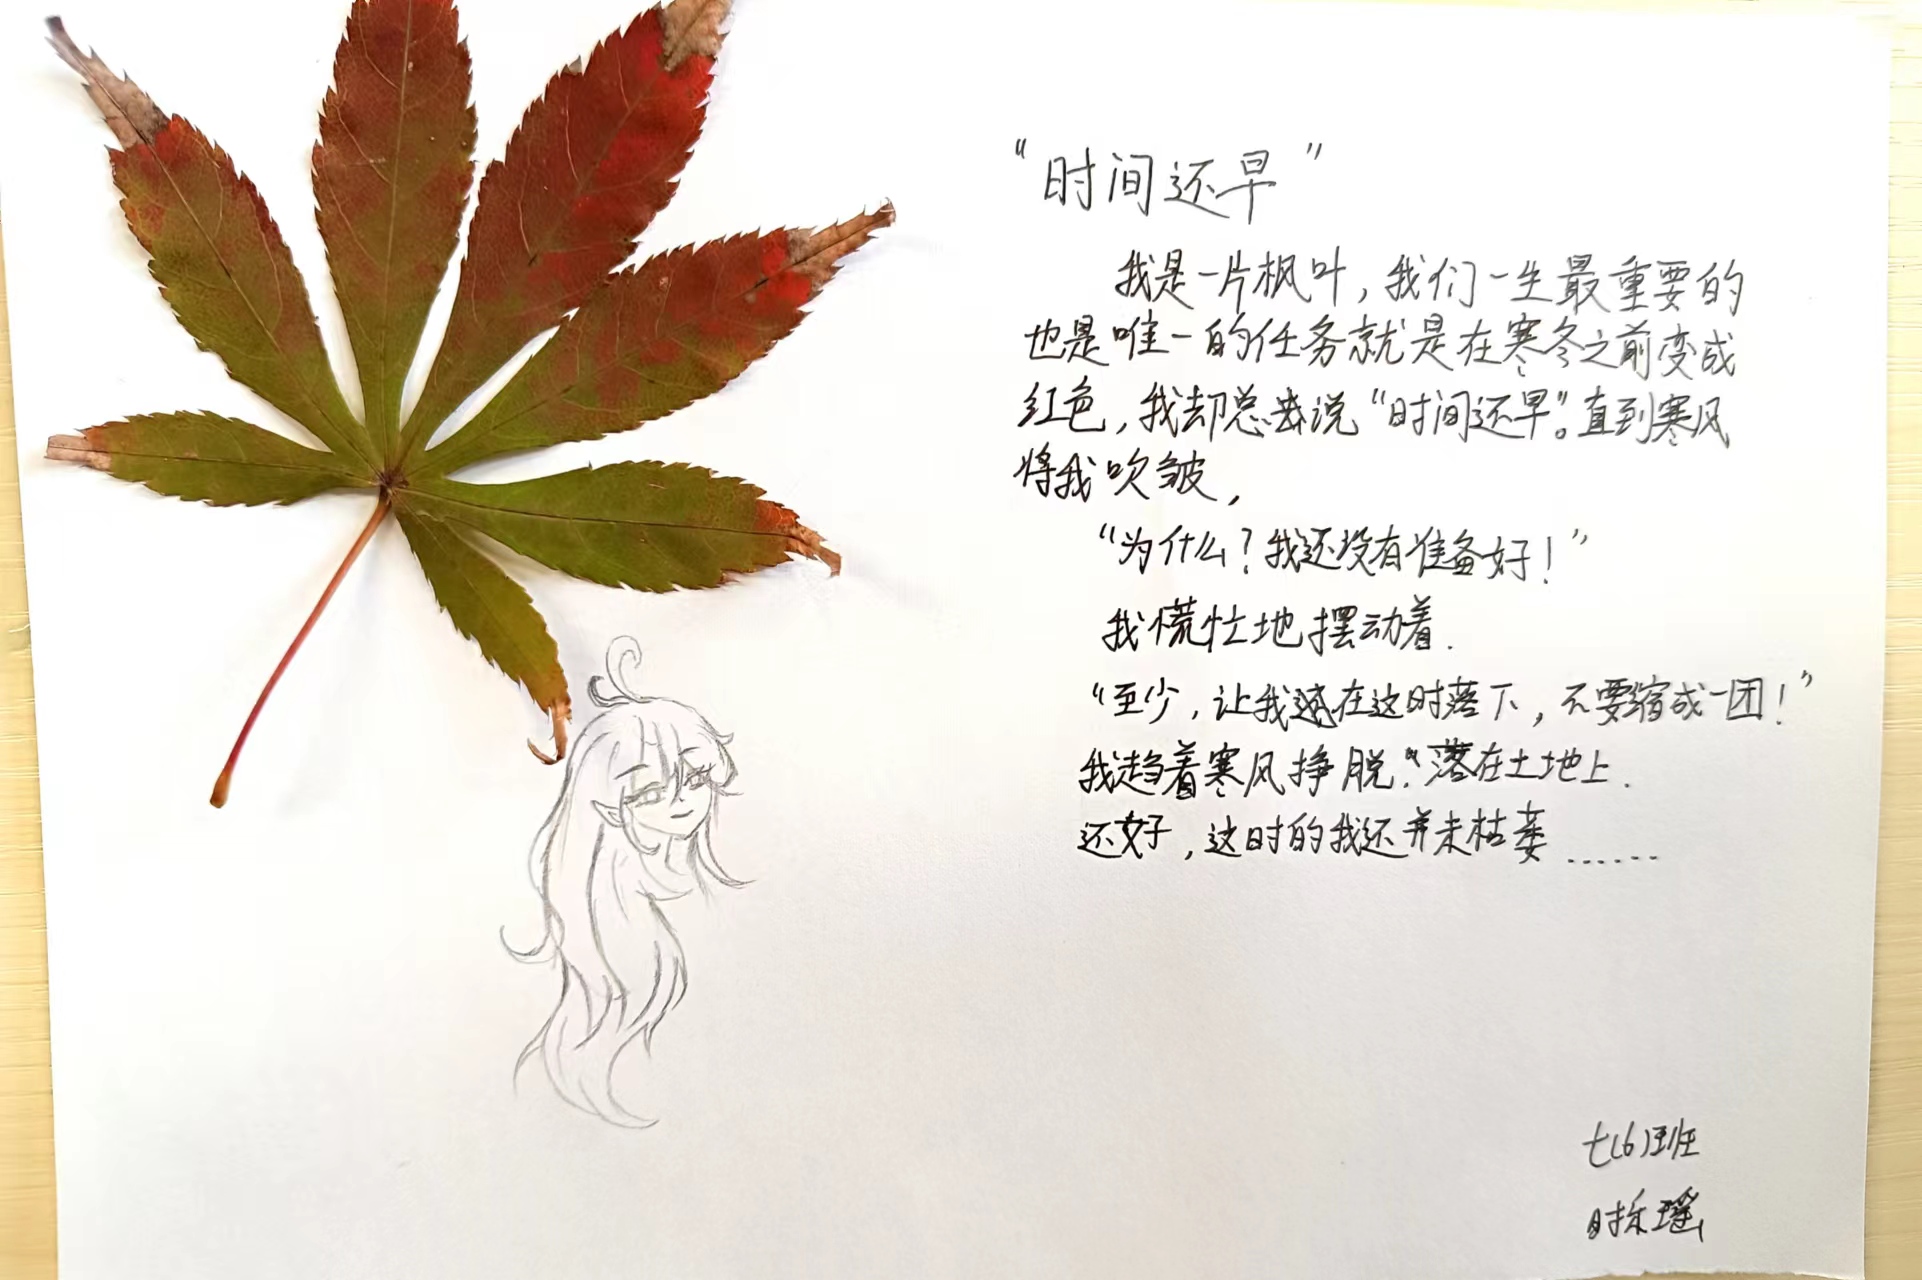 “时间还早”
我是一片枫叶，我们一生最重要的
也是唯一的任务就是在寒冬之前变成
红色，我却总去说“时间还早”。直到寒风
将我吹皱，
“为什么？我还没有准备好！”
我慌忙地摆动着.
“至少，让我还在这时落下，不要缩成一团！”
我趋着寒风挣脱.落在土地上.
还好，这时的我还并未枯萎......
七(6)班
时禾瑶